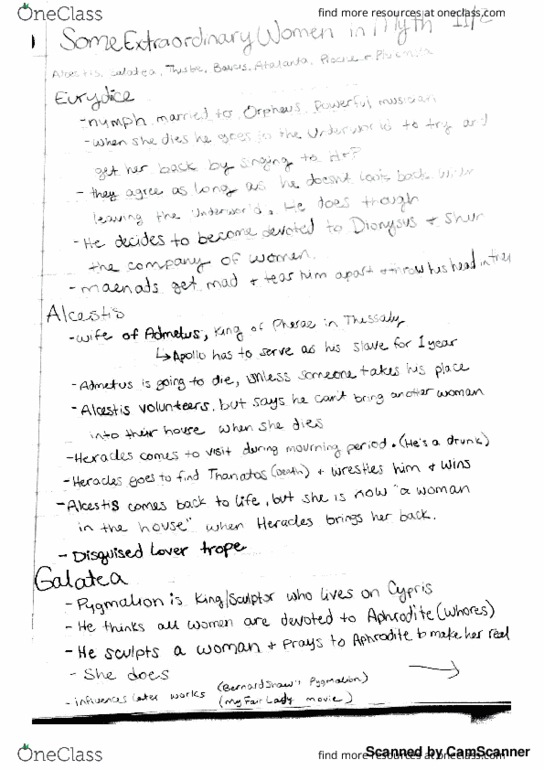 OneClass
find more resources at oneclass.com
Some Extraordinary Women in Myth 11/2
Alcestis, Galatea, Thisbe, Baucis, Atalanta, Procne +
Eurydice
- nymph married to Orpheus, powerful musician
- when she dies he goes to the Underworld to try and
get her back by singing to
- they agree as long as he doesnt look back when
leaving the Underworld. He does though
- He decides to become devoted to Dionysus + shun
the company of women.
- maenads get mad + tear him apart + throw his head in
Alcestis
- wife of Admetus, King of Pherae in Thessaly
↳ Apollo has to serve as his slave for 1 year
- Admetus is going to die, unless someone takes his place
- Alcestis volunteers, but says he can't bring another woman
into their house when she dies
- Heracles comes to visit during mourning period. (He's a drunk)
- Heracles goes to find Thanatos (Death) + wrestles him + wins
- Alcestis comes back to life, but she is now "a woman
in the house" when Heracles brings her back.
- Disguised Lover trope
Galatea
- Pygmalion is King/Sculptor who lives on Cypris
- He thinks all women are devoted to Aphrodite (whores)
- He sculpts a woman + prays to Aphrodite to make her real
- She does
- influences later works (Bernard Shaw's Pygmalion)
(My Fair Lady movie)
Scanned by CamScanner
OneClass
find more resources at oneclass.com